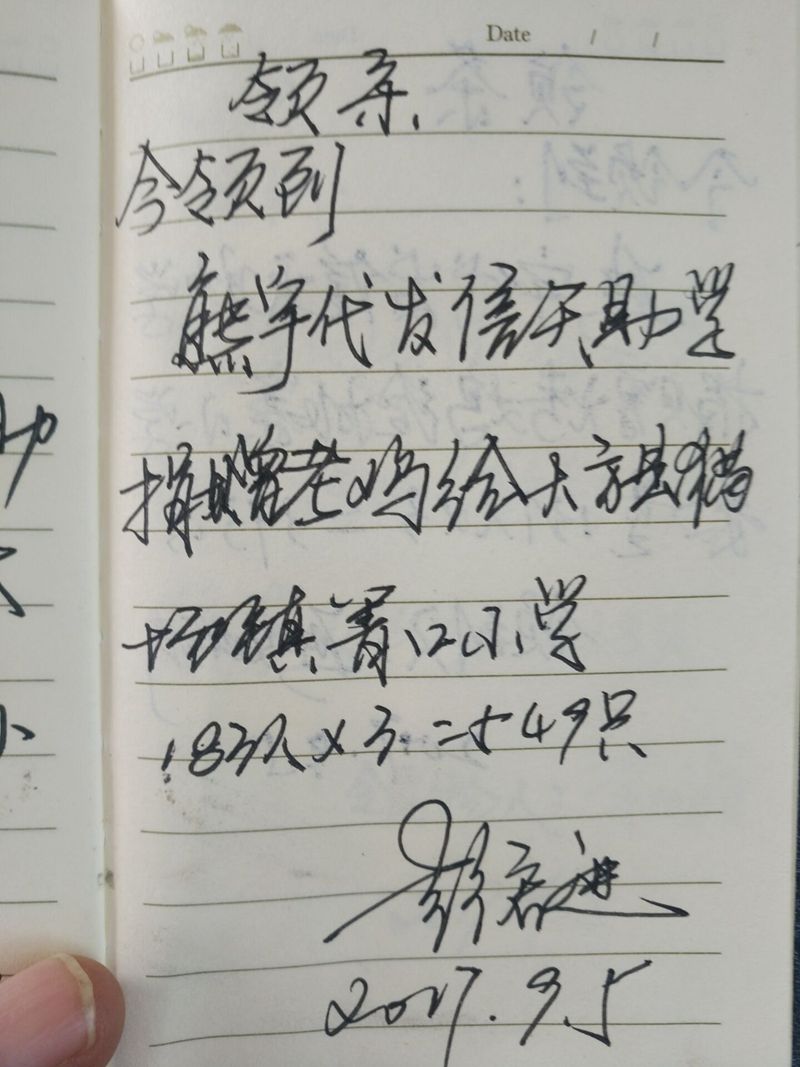 Date / /
领条
今领到
熊宇代发信天助学
捐赠老鸡给大方县猫
场镇箐口小学
183人×3=549只
彭君进
2017.9.5